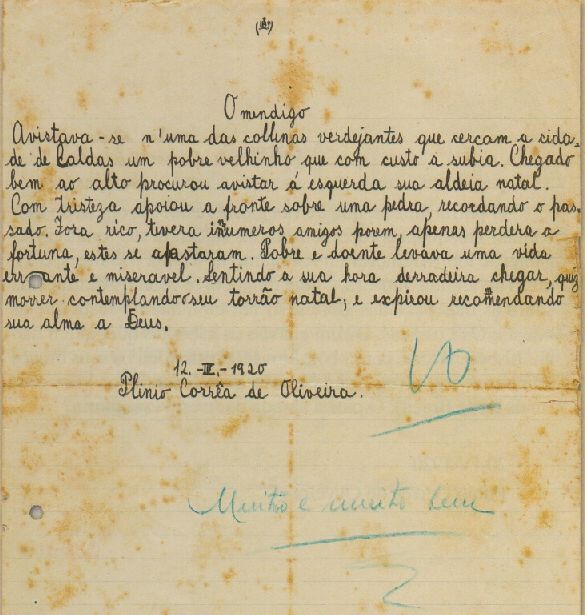 O mendigo
Avistava-se n'uma das collinas verdejantes que cercam a cida-
de de Caldas um pobre velhinho que com custo a subia. Chegado
bem ao alto procurou avistar á esquerda sua aldeia natal.
Com tristeza apoiou a fronte sobre uma pedra, recordando o pas-
sado. Fora rico, tivera inumeros amigos porem, apenas perdera a
fortuna, estes se afastaram. Pobre e doente levava uma vida
errante e miseravel. Sentindo a sua hora derradeira chegar, quiz
morrer contemplando seu torrão natal; e expirou recomendando
sua alma a Deus.
12.-II.-1920
Plinio Corrêa de Oliveira.
10
Muito e muito bem